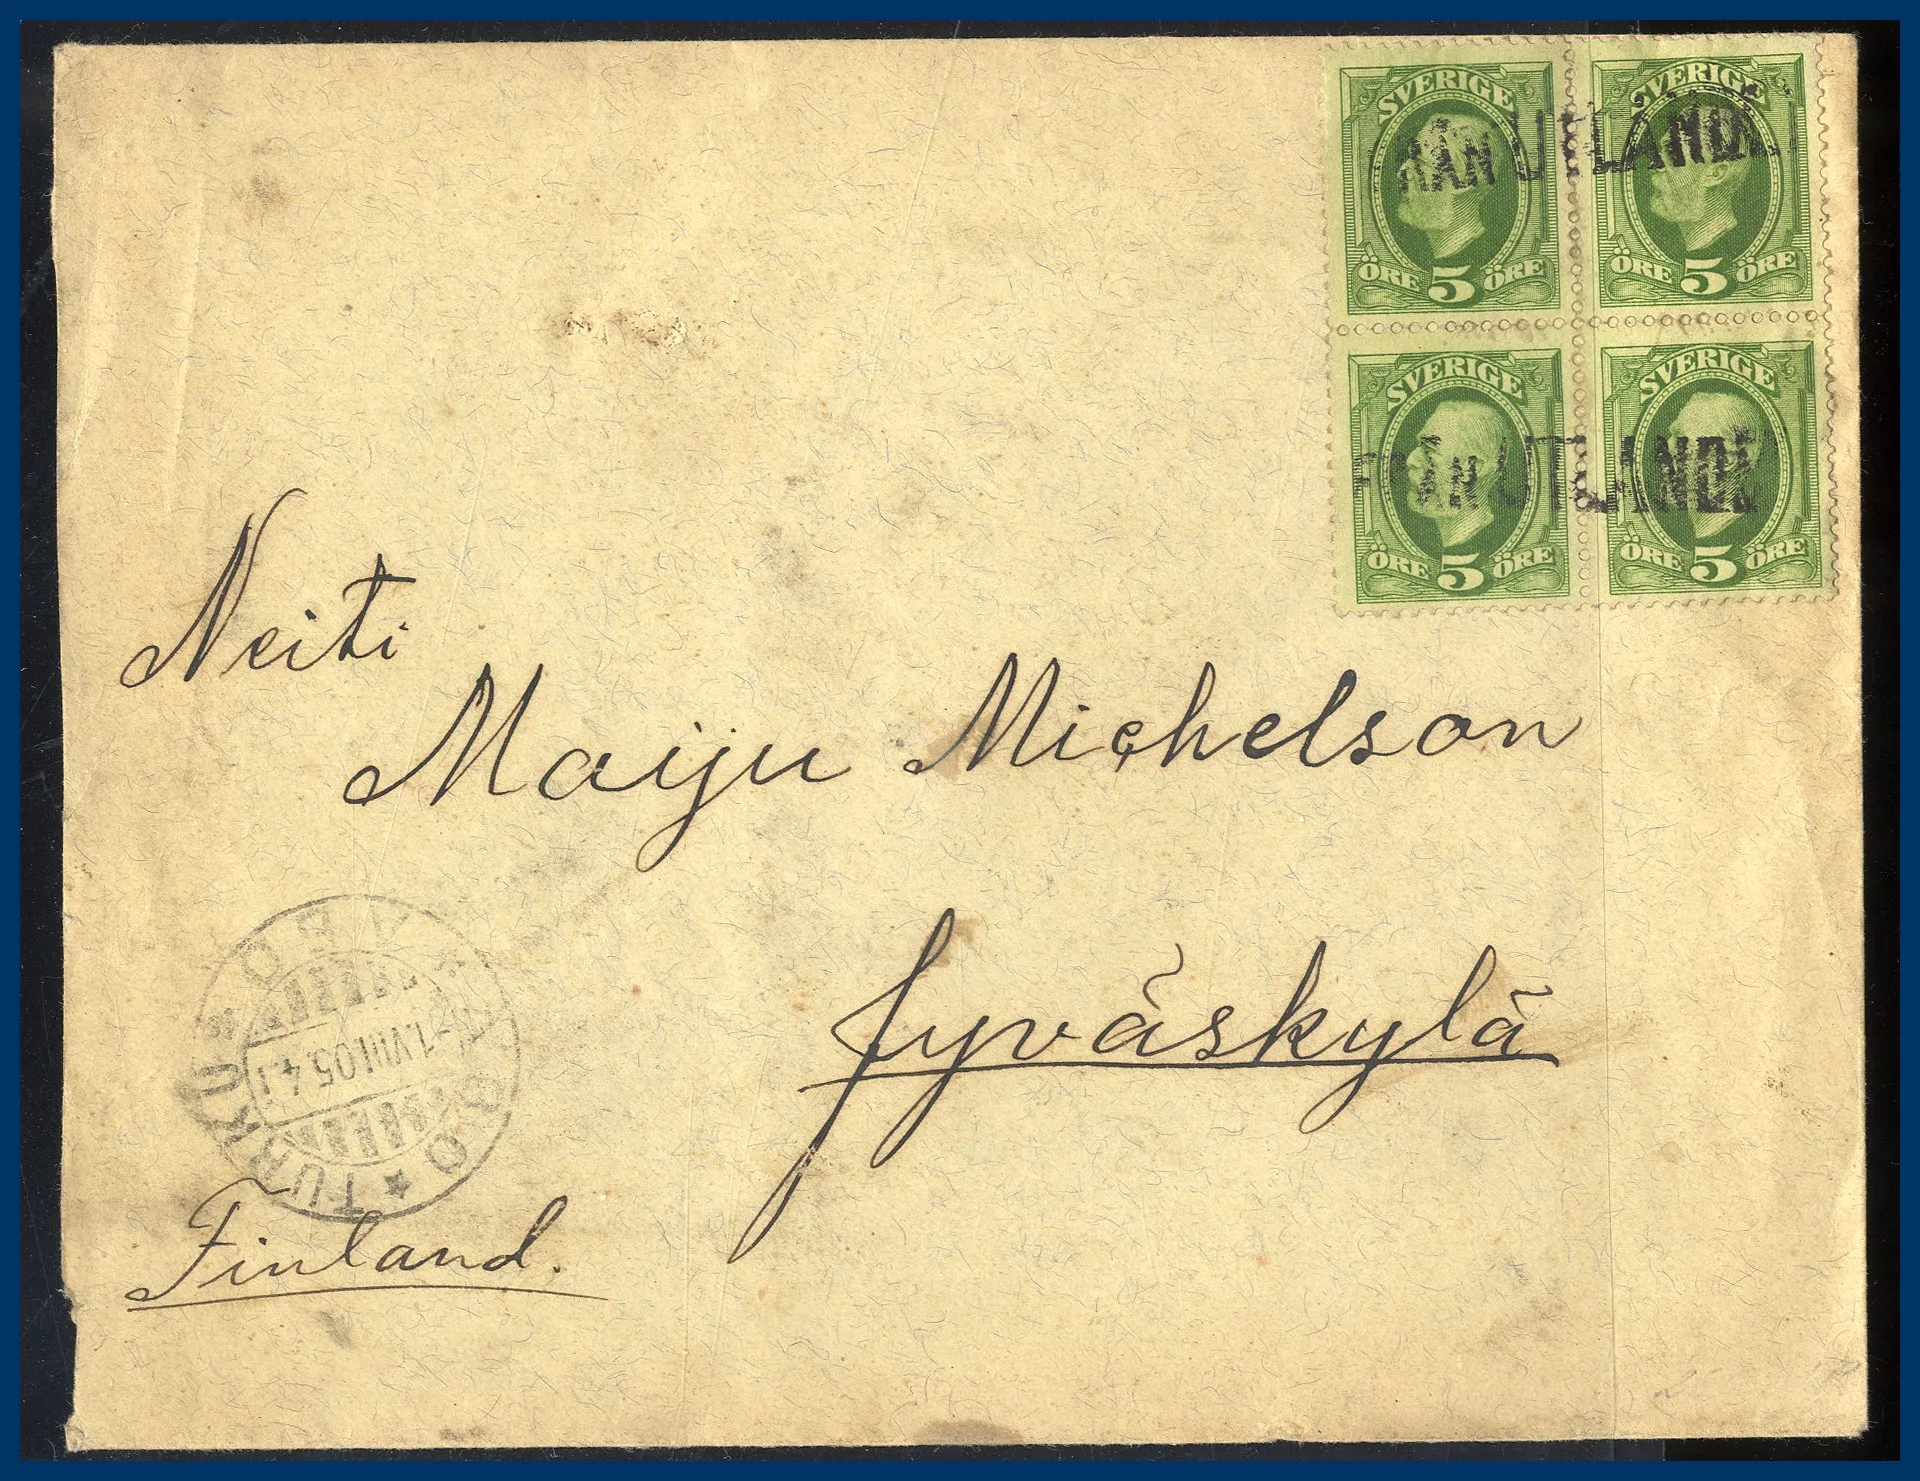 SVERIGE SVERIGE
RÅN UTLANDET
ÖRE 5 ÖRE ÖRE 5 ÖRE
SVERIGE SVERIGE
UTLANDET
ÖRE 5 ÖRE ÖRE 5 ÖRE
Neiti
Maiju Michelson
Jyväskylä
ÅBO
-1.VIII.05.4.
TURKU
Finland.